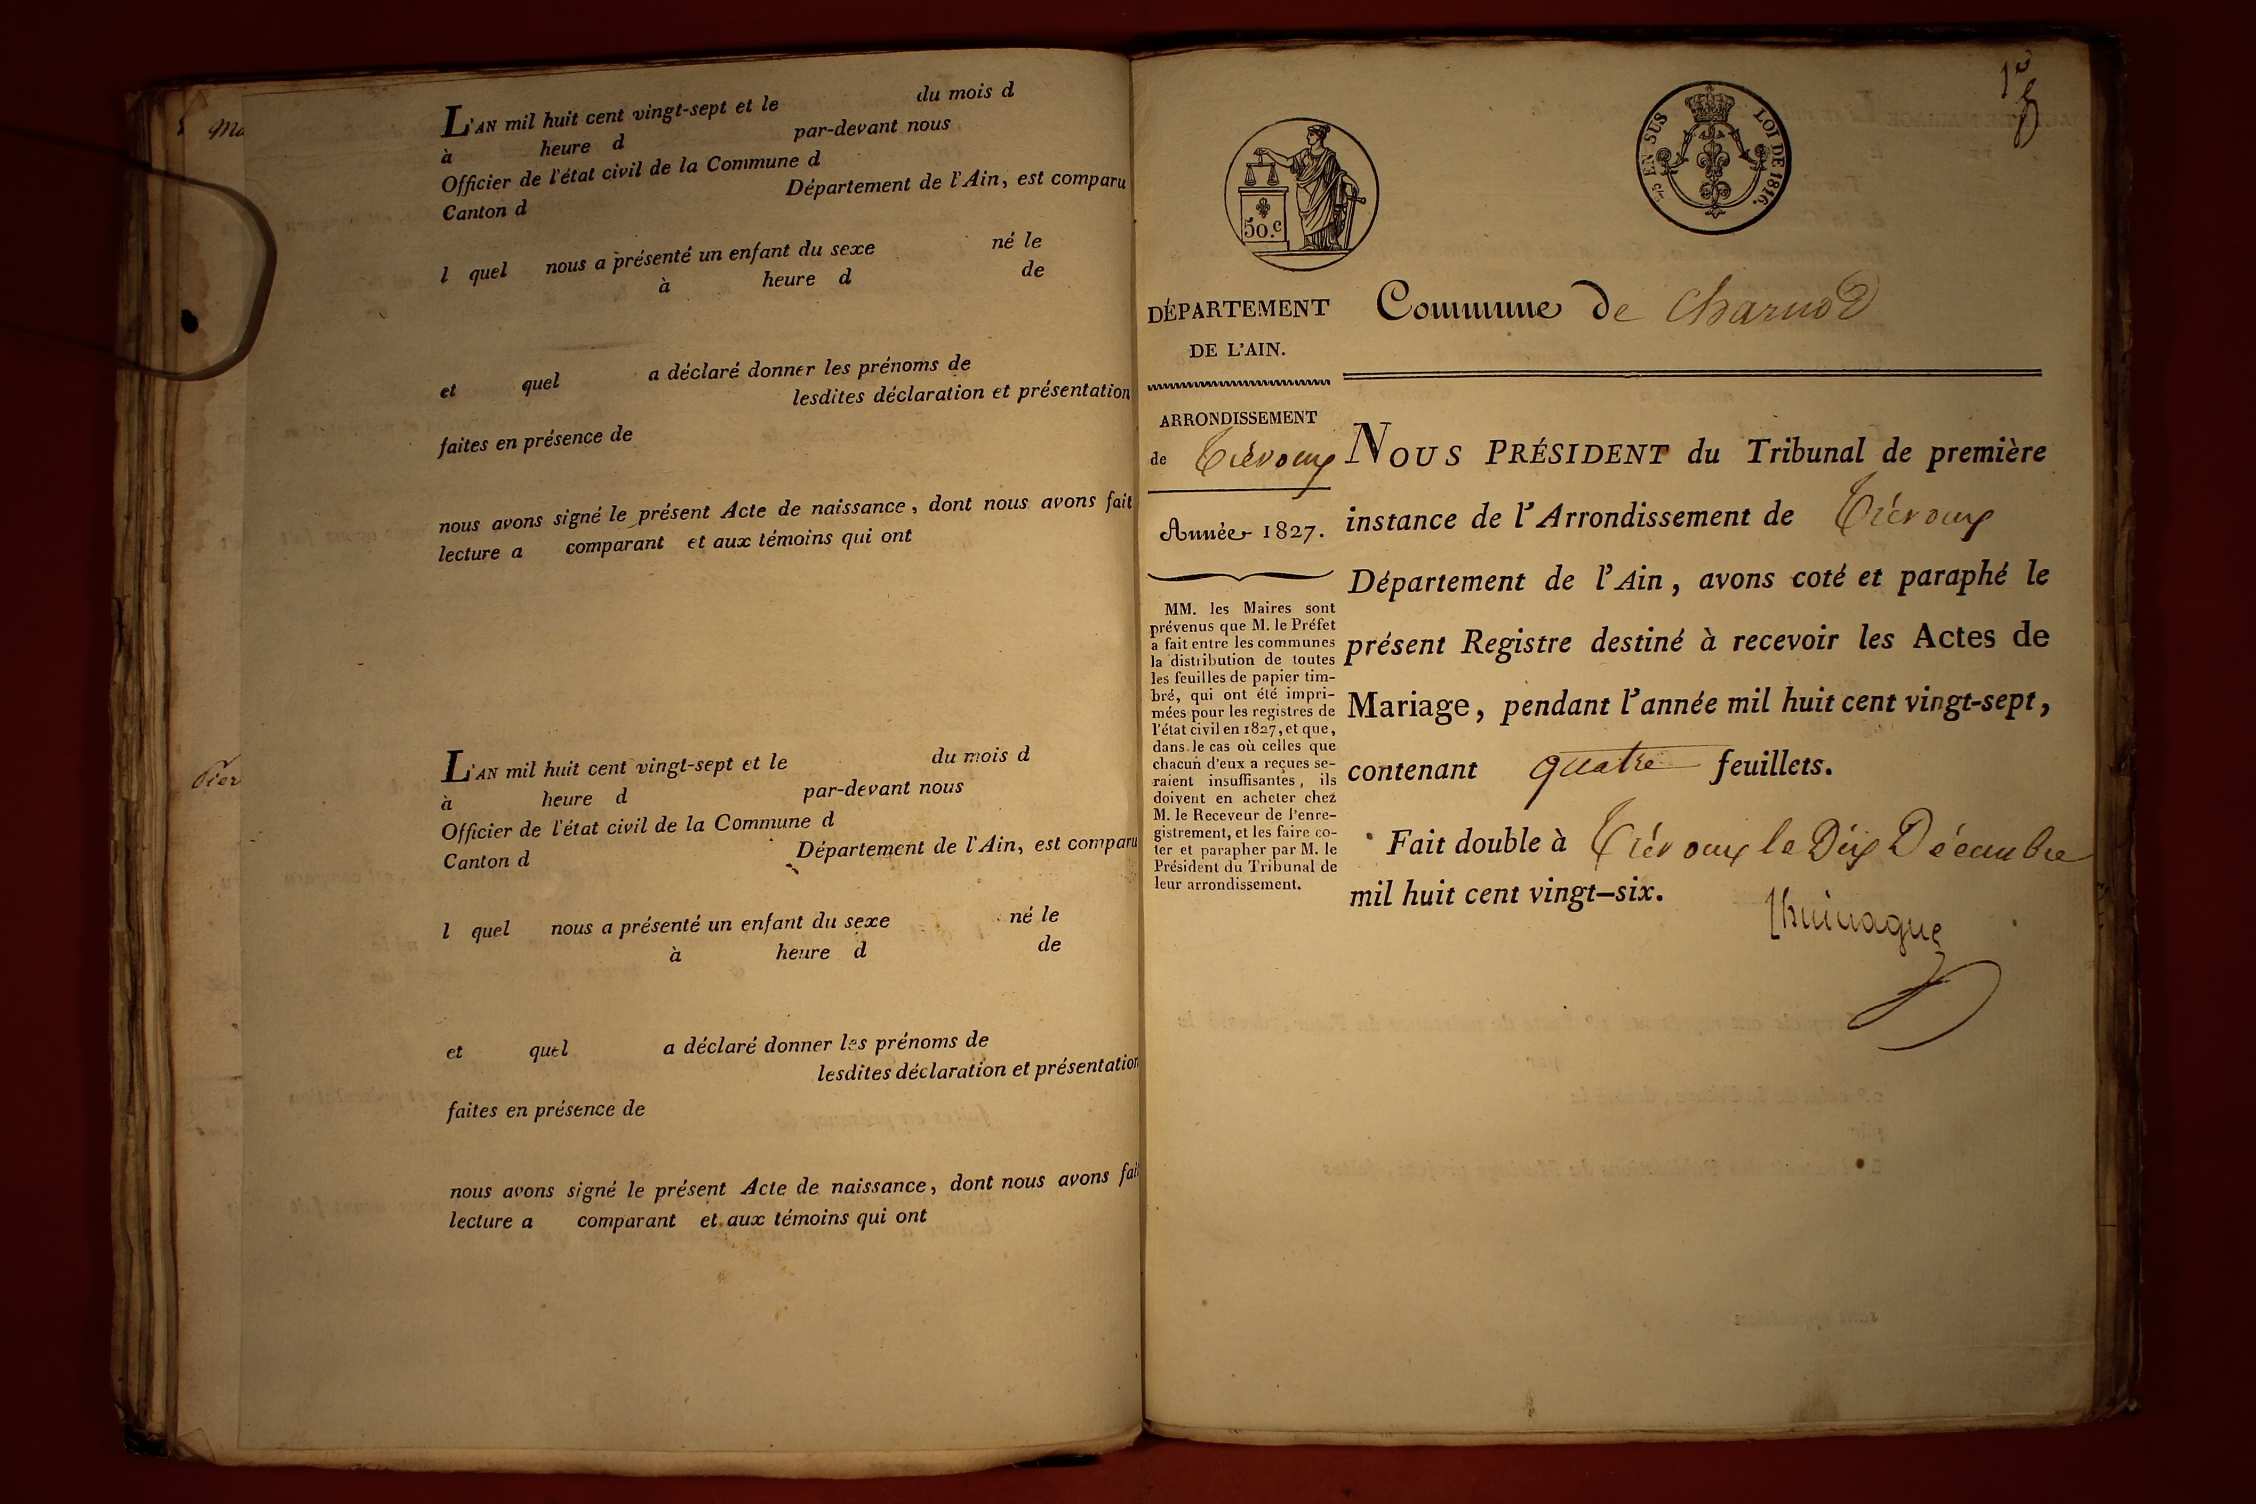 Ma
L'AN mil huit cent vingt-sept et le du mois d
à heure d par-devant nous
Officier de l'état civil de la Commune d
Canton d Département de l'Ain, est comparu
l quel nous a présenté un enfant du sexe né le
à heure d de
et quel a déclaré donner les prénoms de
lesdites déclaration et présentation
faites en présence de
nous avons signé le présent Acte de naissance, dont nous avons fait
lecture a comparant et aux témoins qui ont
L'AN mil huit cent vingt-sept et le du mois d
à heure d par-devant nous
Officier de l'état civil de la Commune d
Canton d Département de l'Ain, est comparu
l quel nous a présenté un enfant du sexe né le
à heure d de
et quel a déclaré donner les prénoms de
lesdites déclaration et présentation
faites en présence de
nous avons signé le présent Acte de naissance, dont nous avons fait
lecture a comparant et aux témoins qui ont
50.c
EN SUS LOI DE 1816.
DÉPARTEMENT
DE L'AIN.
ARRONDISSEMENT
de Trévoux
Année 1827.
MM. les Maires sont
prévenus que M. le Préfet
a fait entre les communes
la distribution de toutes
les feuilles de papier tim-
bré, qui ont été impri-
mées pour les registres de
l'état civil en 1827, et que,
dans le cas où celles que
chacun d'eux a reçues se-
raient insuffisantes, ils
doivent en acheter chez
M. le Receveur de l'enre-
gistrement, et les faire co-
ter et parapher par M. le
Président du Tribunal de
leur arrondissement.
Commune de Charnod
NOUS PRÉSIDENT du Tribunal de première
instance de l'Arrondissement de Trévoux
Département de l'Ain, avons coté et paraphé le
présent Registre destiné à recevoir les Actes de
Mariage, pendant l'année mil huit cent vingt-sept,
contenant quatre feuillets.
Fait double à Trévoux le Dix Décembre
mil huit cent vingt-six.